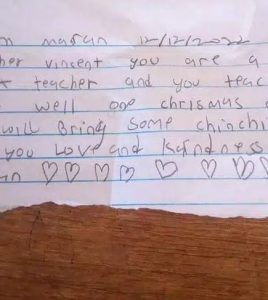 marян 12/12/2022
her vincent you are a
teacher and you teac
well one chrismas
will Bring some chinchi
you Love and Kaindness